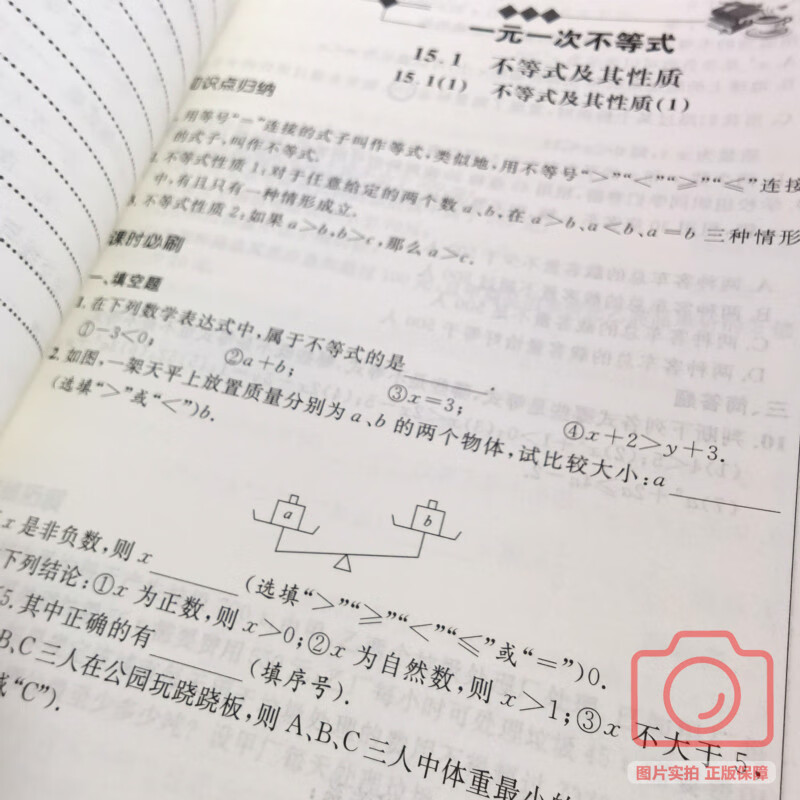 一元一次不等式
15.1 不等式及其性质
15.1(1) 不等式及其性质(1)
知识点归纳
用等号“=”连接的式子叫作等式,类似地,用不等号“>”“<”“≥”“≤”连接
的式子,叫作不等式.
不等式性质1:对于任意给定的两个数a、b,在a>b、a<b、a=b三种情形
中,有且只有一种情形成立.
3. 不等式性质2:如果a>b,b>c,那么a>c.
课时必刷
一、填空题
1. 在下列数学表达式中,属于不等式的是________.
①-3<0; ②a+b; ③x=3; ④x+2>y+3.
2. 如图,一架天平上放置质量分别为a、b的两个物体,试比较大小:a________
(选填“>”或“<”)b.
a b
x是非负数,则x________(选填“>”“≥”“<”“≤”或“=”)0.
下列结论:①x为正数,则x>0;②x为自然数,则x>1;③x不大于5,
5. 其中正确的有________(填序号).
B、C三人在公园玩跷跷板,则A、B、C三人中体重最小的
或“C”).
图片实拍 正版保障